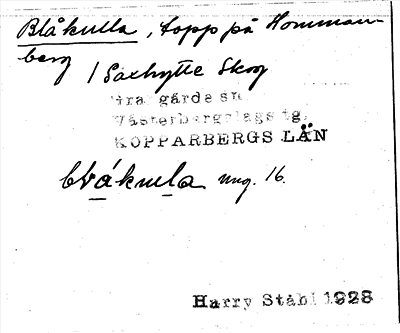 Blåkulla, topp på Homman-
berg / Saxhytte Skog
Grangärde sn
Västerbergslags tg.
KOPPARBERGS LÄN
blákula ung. 16.
Harry Ståhl 1928